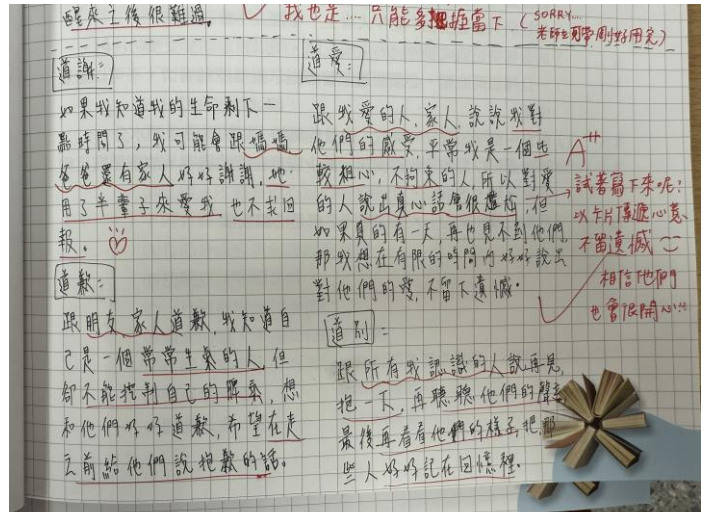 醒來之後很難過。
我也是...只能多把握當下
(SORRY...
老師立可帶剛好用完)
道謝:
如果我知道我的生命剩下一
點時間了,我可能會跟媽媽
爸爸還有家人好好謝謝,她
用了半輩子來愛我,也不求回
報。
道歉:
跟朋友、家人道歉,我知道自
己是一個常常生氣的人,但
卻不能控制自己的脾氣,想
和他們好好道歉,希望在走
之前給他們說抱歉的話。
道愛:
跟我愛的人、家人,說說我對
他們的感受,平常我是一個比
較粗心,不拘束的人,所以對愛
的人說出真心話會很尷尬,但
如果真的有一天,再也見不到他們,
那我想在有限的時間內好好說出
對他們的愛,不留下遺憾。
道別:
跟所有我認識的人說再見,
抱一下,再聽聽他們的聲音
最後再看看他們的樣子,把那
些人好好記在回憶裡。
A++
試著寫下來呢?
以卡片傳遞心意
不留遺憾
相信他們
也會很開心!!!